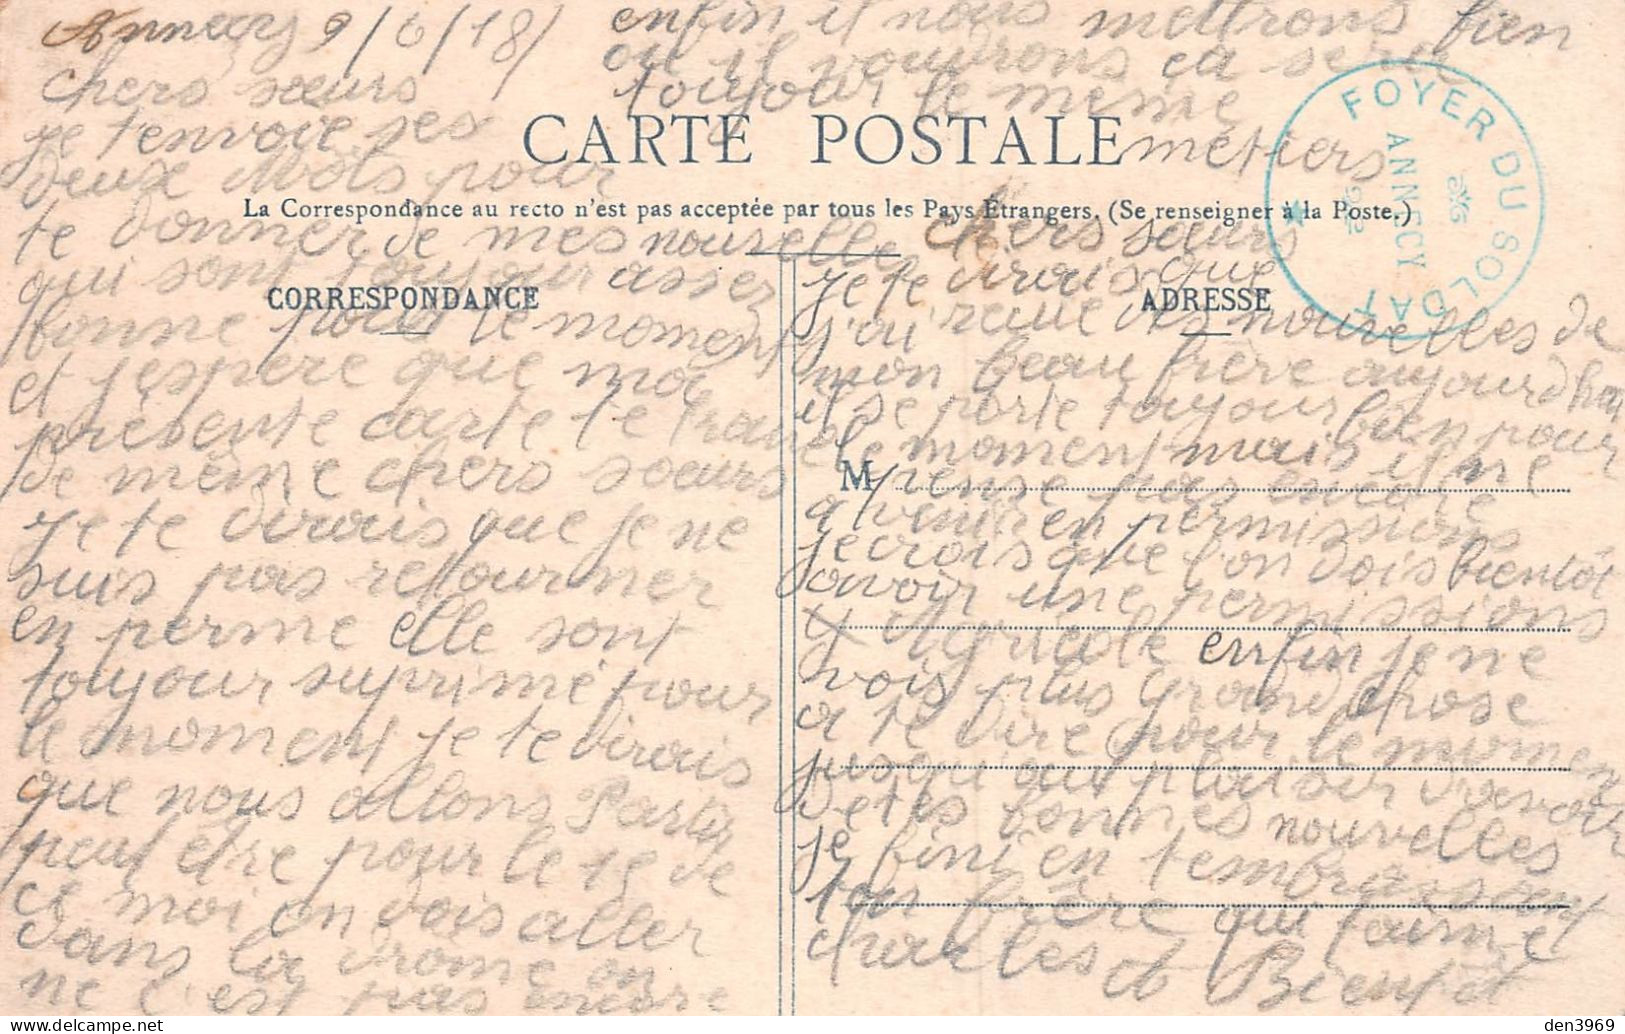 Annecy 9/6/18/
chers sœurs
je t'envoie ses
deux Mots pour
te donner de mes nouvelle
qui sont toujour assez
bonne pour le moment
et j'espère que ma
présente carte te trouve
de même chers sœurs
Je te dirais que je ne
suis pas retourner
en perme elle sont
toujour suprimé pour
le moment je te dirais
que nous allons Partir
peut etre pour le 15 de
ce moi on dois aller
dans la drome on
ne c'est pas encore
enfin il nous mettrons bien
ou il voudrons ça sera
toujour le même
métiers
CARTE POSTALE
La Correspondance au recto n'est pas acceptée par tous les Pays Étrangers. (Se renseigner à la Poste.)
CORRESPONDANCE
ADRESSE
FOYER DU SOLDAT
ANNECY
chers sœurs
Je te dirais que
j'ai reçue des nouvelles de
mon beau frère aujourdhui
il se porte toujour bien pour
le moment mais il ne
M
pense pas encore
a venir en permissions
je crois que l'on dois bientôt
avoir une permissions
Agricole enfin je ne
vois plus grand chose
a te dire pour le moment
jusqu'au plaisir d'avoir
de tes bonnes nouvelles
je fini en t'embrassant
ton frère qui t'aime
charles a Bientôt
den3969